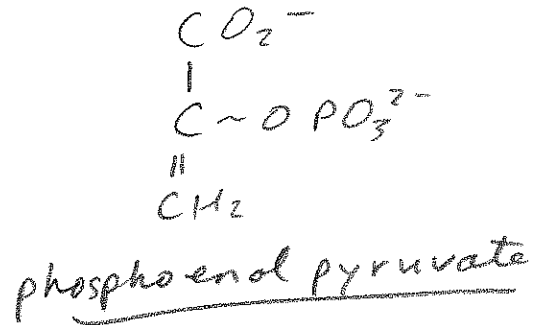 CO₂⁻
C~OPO₃²⁻
CH₂
phosphoenol pyruvate